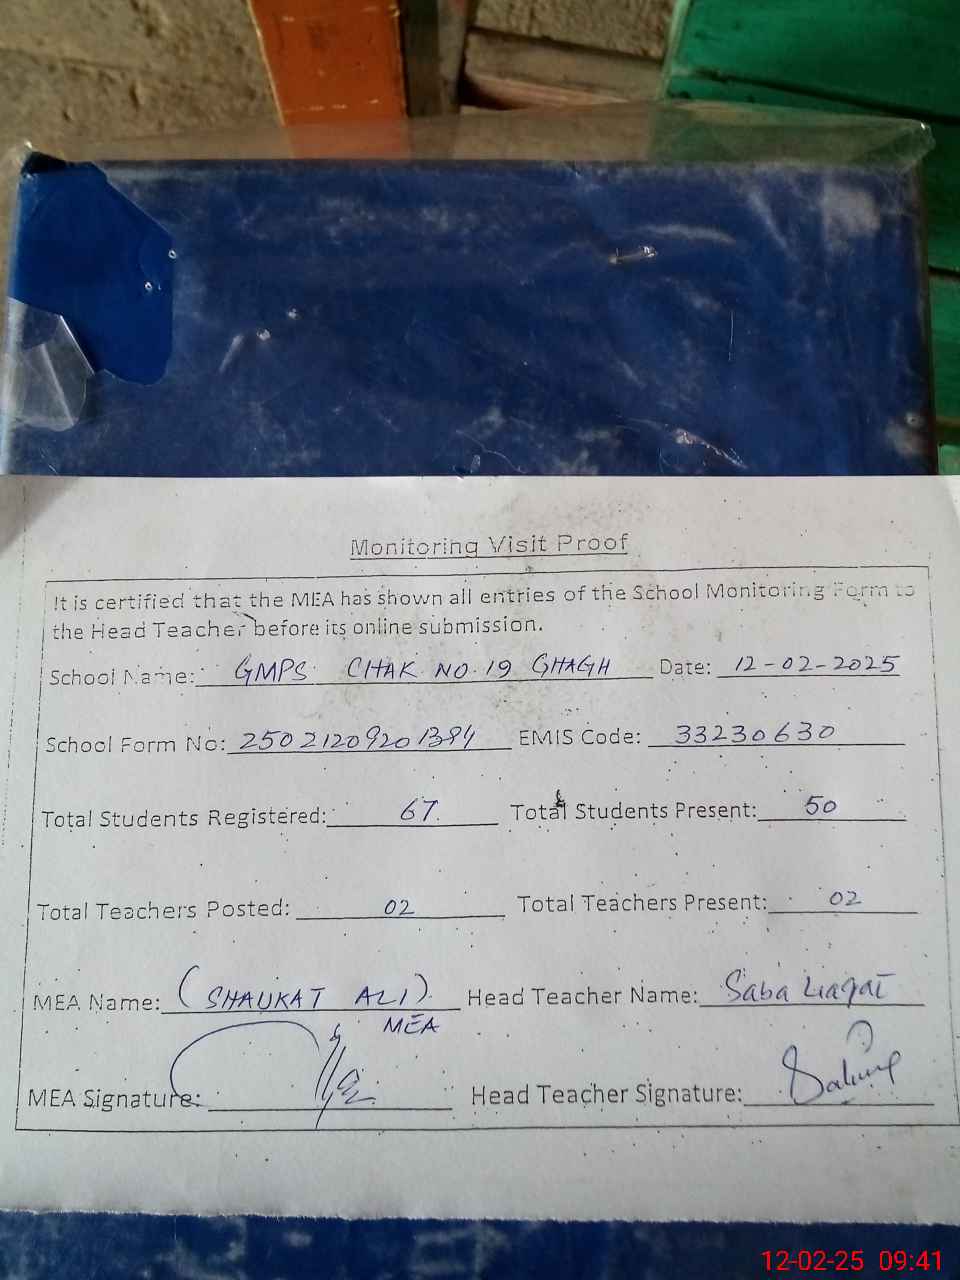 Monitoring Visit Proof
It is certified that the MEA has shown all entries of the School Monitoring Form to
the Head Teacher before its online submission.
School Name: GMPS CHAK NO. 19 GHAGH Date: 12-02-2025
School Form No: 25021209201384 EMIS Code: 33230630
Total Students Registered: 67 Total Students Present: 50
Total Teachers Posted: 02 Total Teachers Present: 02
MEA Name: (SHAUKAT ALI) Head Teacher Name: Saba Liaqat
MEA
MEA Signature: Head Teacher Signature:
12-02-25 09:41